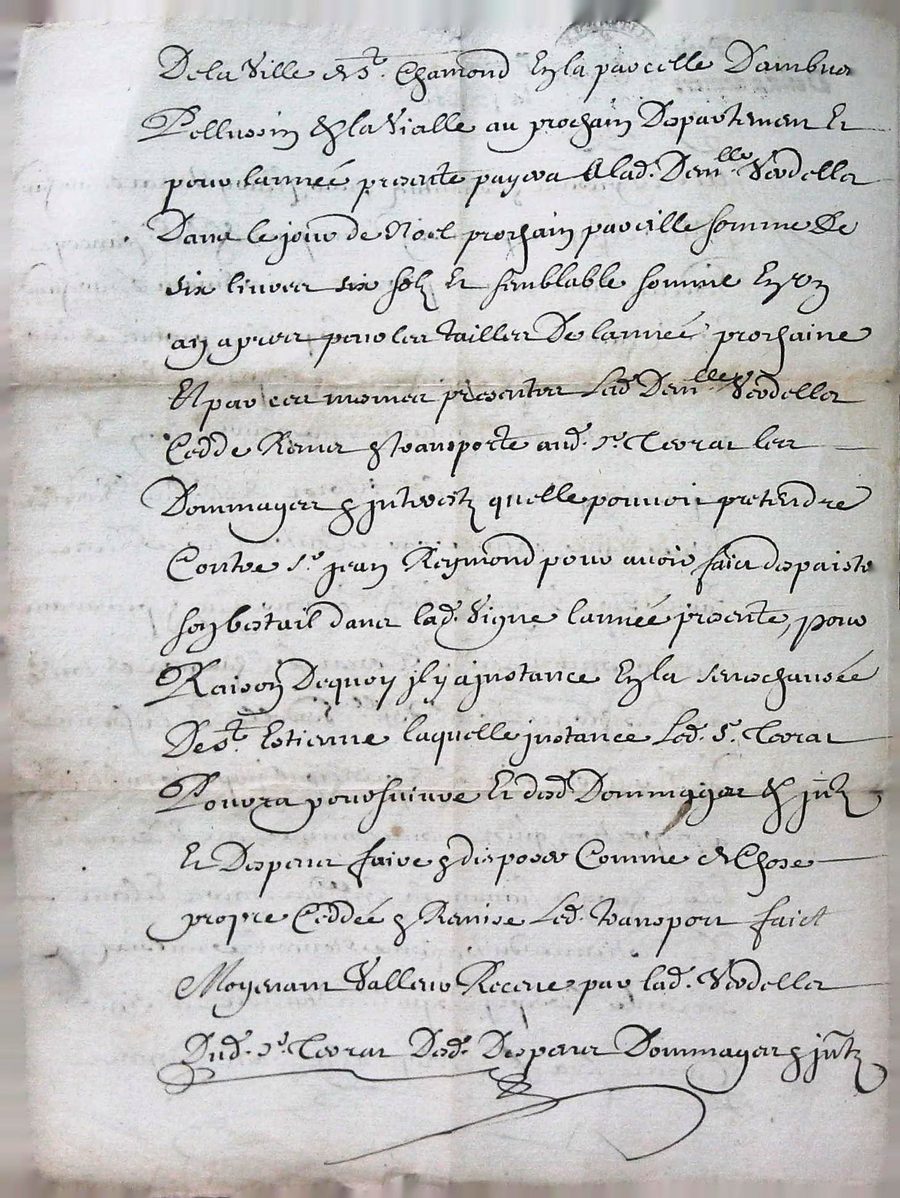 De la Ville de St. Chamond En la parcelle Dambus
Pellussin & la Vialle au prochain Despartement Et
pour lannéé presente payera A lad. Demlle Verdelles
Dans le jour de Noel prochain pareille somme De
six livres six solz Et semblable somme En Un
an apres pour les tailles De lannéé prochaine
Et par ces mesmes presentes Lad. Demlle Verdelles
Cedde Remet & transporte aud. sr. Terrat les
Dommages & jnterestz quelle pouvoit pretendre
Contre sr. jean Reymond pour avoir faict despaistre
son bestail dans lad. Vigne lannéé presente, pour
Raison Dequoy jl y a jnstance En la seneschaussée
De St. Estienne laquelle jnstance Led. Sr. Terrat
Pourra poursuivre Et desd. Dommages & jntz
Et Despens faire & disposer Comme de Chose
propre Ceddéé & Remise Led. transport faict
Moyenant Valleur Receue par lad. Verdelles
Dud. sr. Terrat Desd. Despens Dommages & jntz